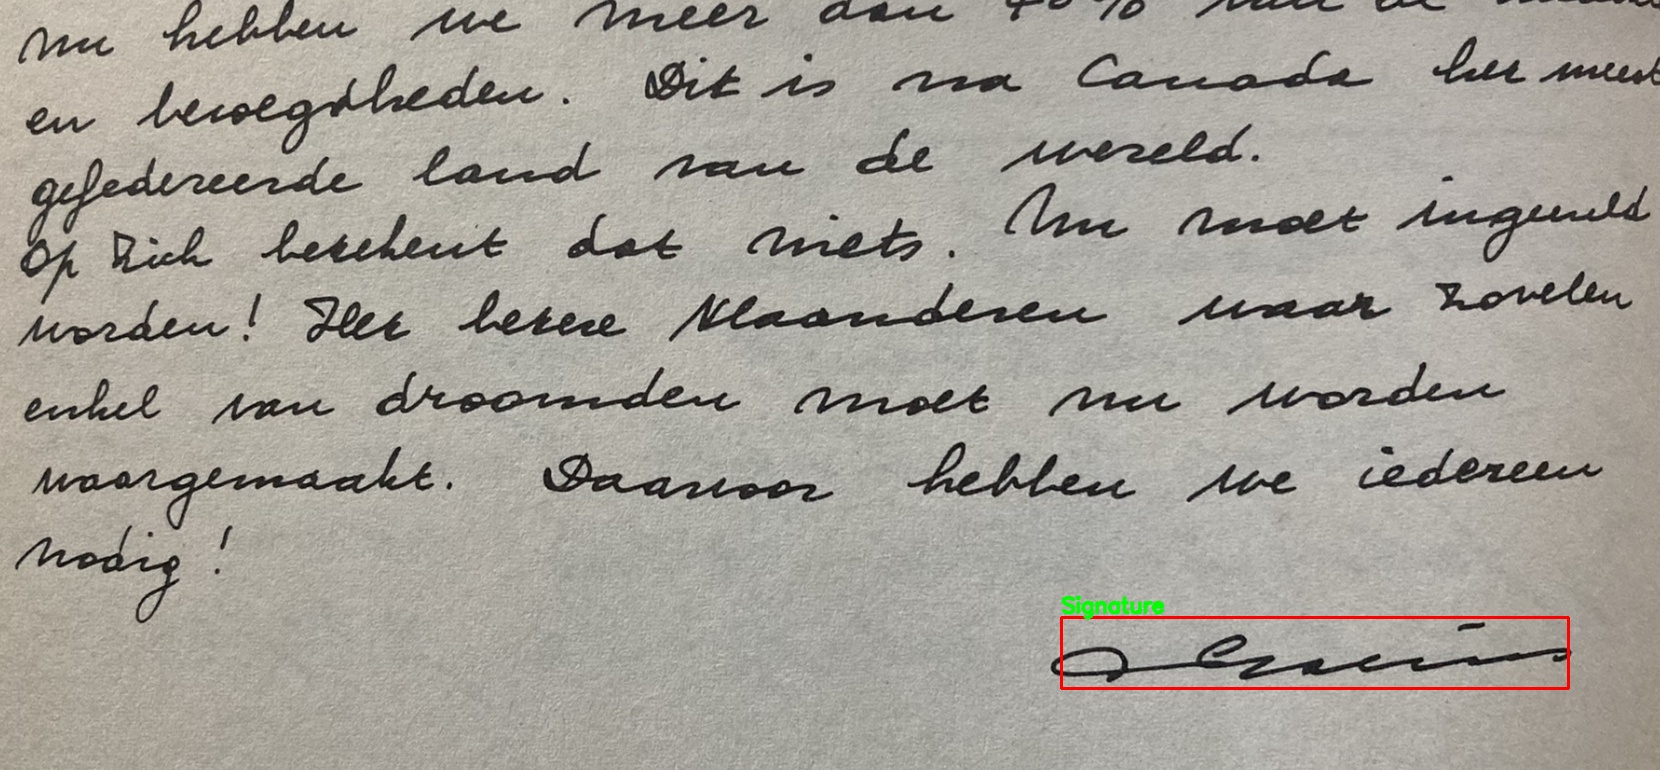 nu hebben we meer dan 40% van de
en bevoegdheden. Dit is na Canada het meest
gefedereerde land van de wereld.
Op zich betekent dat niets. Nu moet ingevuld
worden! Het betere Vlaanderen waar zovelen
enkel van droomden moet nu worden
waargemaakt. Daarvoor hebben we iedereen
nodig!
Signature